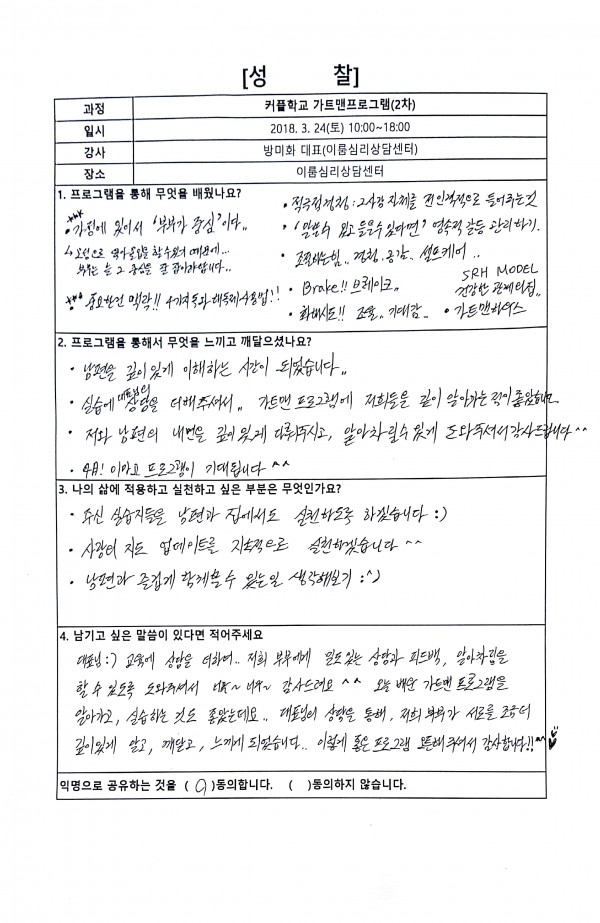 [성 찰]
과정 커플학교 가트맨프로그램(2차)
일시 2018. 3. 24(토) 10:00~18:00
강사 방미화 대표(이룸심리상담센터)
장소 이룸심리상담센터
1. 프로그램을 통해 무엇을 배웠나요?
가정에 있어서 '부부가 중심'이다,,
적극적경청: 2시간 자체를 전인격적으로 들어주는것
영속적 갈등 관리하기.
경청. 공감.. 셀프케어..
중요한건 맥락!!
Brake!! 브레이크,,
SRH MODEL
건강한 관계의집,,
화해시도!! 조율,, 기대감..
가트맨하우스
2. 프로그램을 통해서 무엇을 느끼고 깨달으셨나요?
• 남편을 깊이있게 이해하는 시간이 되었습니다,,
• 실습에 대표님의 상담을 더해주셔서,, 가트맨 프로그램에 저희들을 깊이 알아가는 것이 좋았습니다
• 저와 남편의 내면을 깊이있게 다뤄주시고, 알아차릴수있게 도와주셔서 감사드립니다^^
• 4月! 이마고 프로그램이 기대됩니다^^
3. 나의 삶에 적용하고 실천하고 싶은 부분은 무엇인가요?
• 주신 실습지들을 남편과 집에서도 실천하도록 하겠습니다 :)
• 사랑의 지도 업데이트를 지속적으로 실천하겠습니다 ^^
• 남편과 즐겁게 함께할 수 있는일 생각해보기 :^)
4. 남기고 싶은 말씀이 있다면 적어주세요
대표님:) 교육에 상담을 더하여.. 저희 부부에게 밀도있는 상담과 피드백, 알아차림을
할 수 있도록 도와주셔서 너무~ 너무~ 감사드려요 ^^ 오늘 배운 가트맨 프로그램을
알아가고, 실습하는 것도 좋았는데요.. 대표님의 상담을 통해, 저희 부부가 서로를 조금더
깊이있게 알고, 깨닫고, 느끼게 되었습니다.. 이렇게 좋은 프로그램 오픈해주셔서 감사합니다!!^^
익명으로 공유하는 것을 ( )동의합니다. ( )동의하지 않습니다.